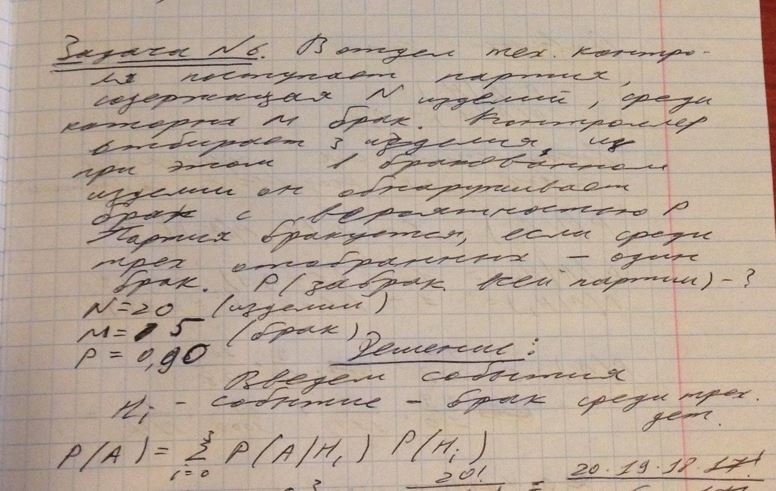 Задача N6. В отдел тех. контро-
ля поступает партия,
содержащая N изделий, среди
которых M брак. Контроллер
отбирает 3 изделия, из
при этом в бракованном
изделии он обнаруживает
брак с вероятностью P
Партия бракуется, если среди
трех отобранных – один
брак. P(забрак. всей партии) – ?
N=20 (изделий)
M=15 (брак)
P=0,90 Решение:
Введем события
Hi – событие – брак среди трех.
дет.
P(A) = Σ P(A|Hi) P(Hi)
i=0
3
20! = 20·19·18·17!